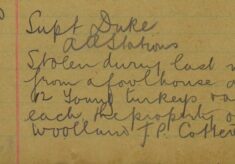 Supt Duke
All Stations
Stolen during last n
from a fowlhouse a
12 young turkeys va
each, the property o
Woolland J.P. Cotter